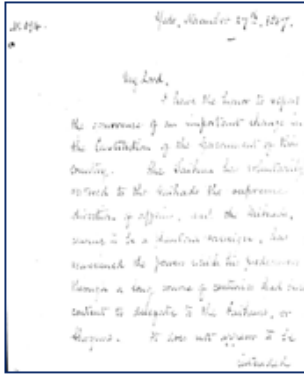 Yedo, November 27th, 1867.
My Lord,
I have the honor to report
the occurrence of an important change in
the Constitution of the Government of this
Country. The has voluntarily
to the Mikado the supreme
direction of affairs, and the Mikado,
to be a sovereign, has
the power which his predecessors
through a long course of centuries had been
content to delegate to the or
It does not appear to be
intended